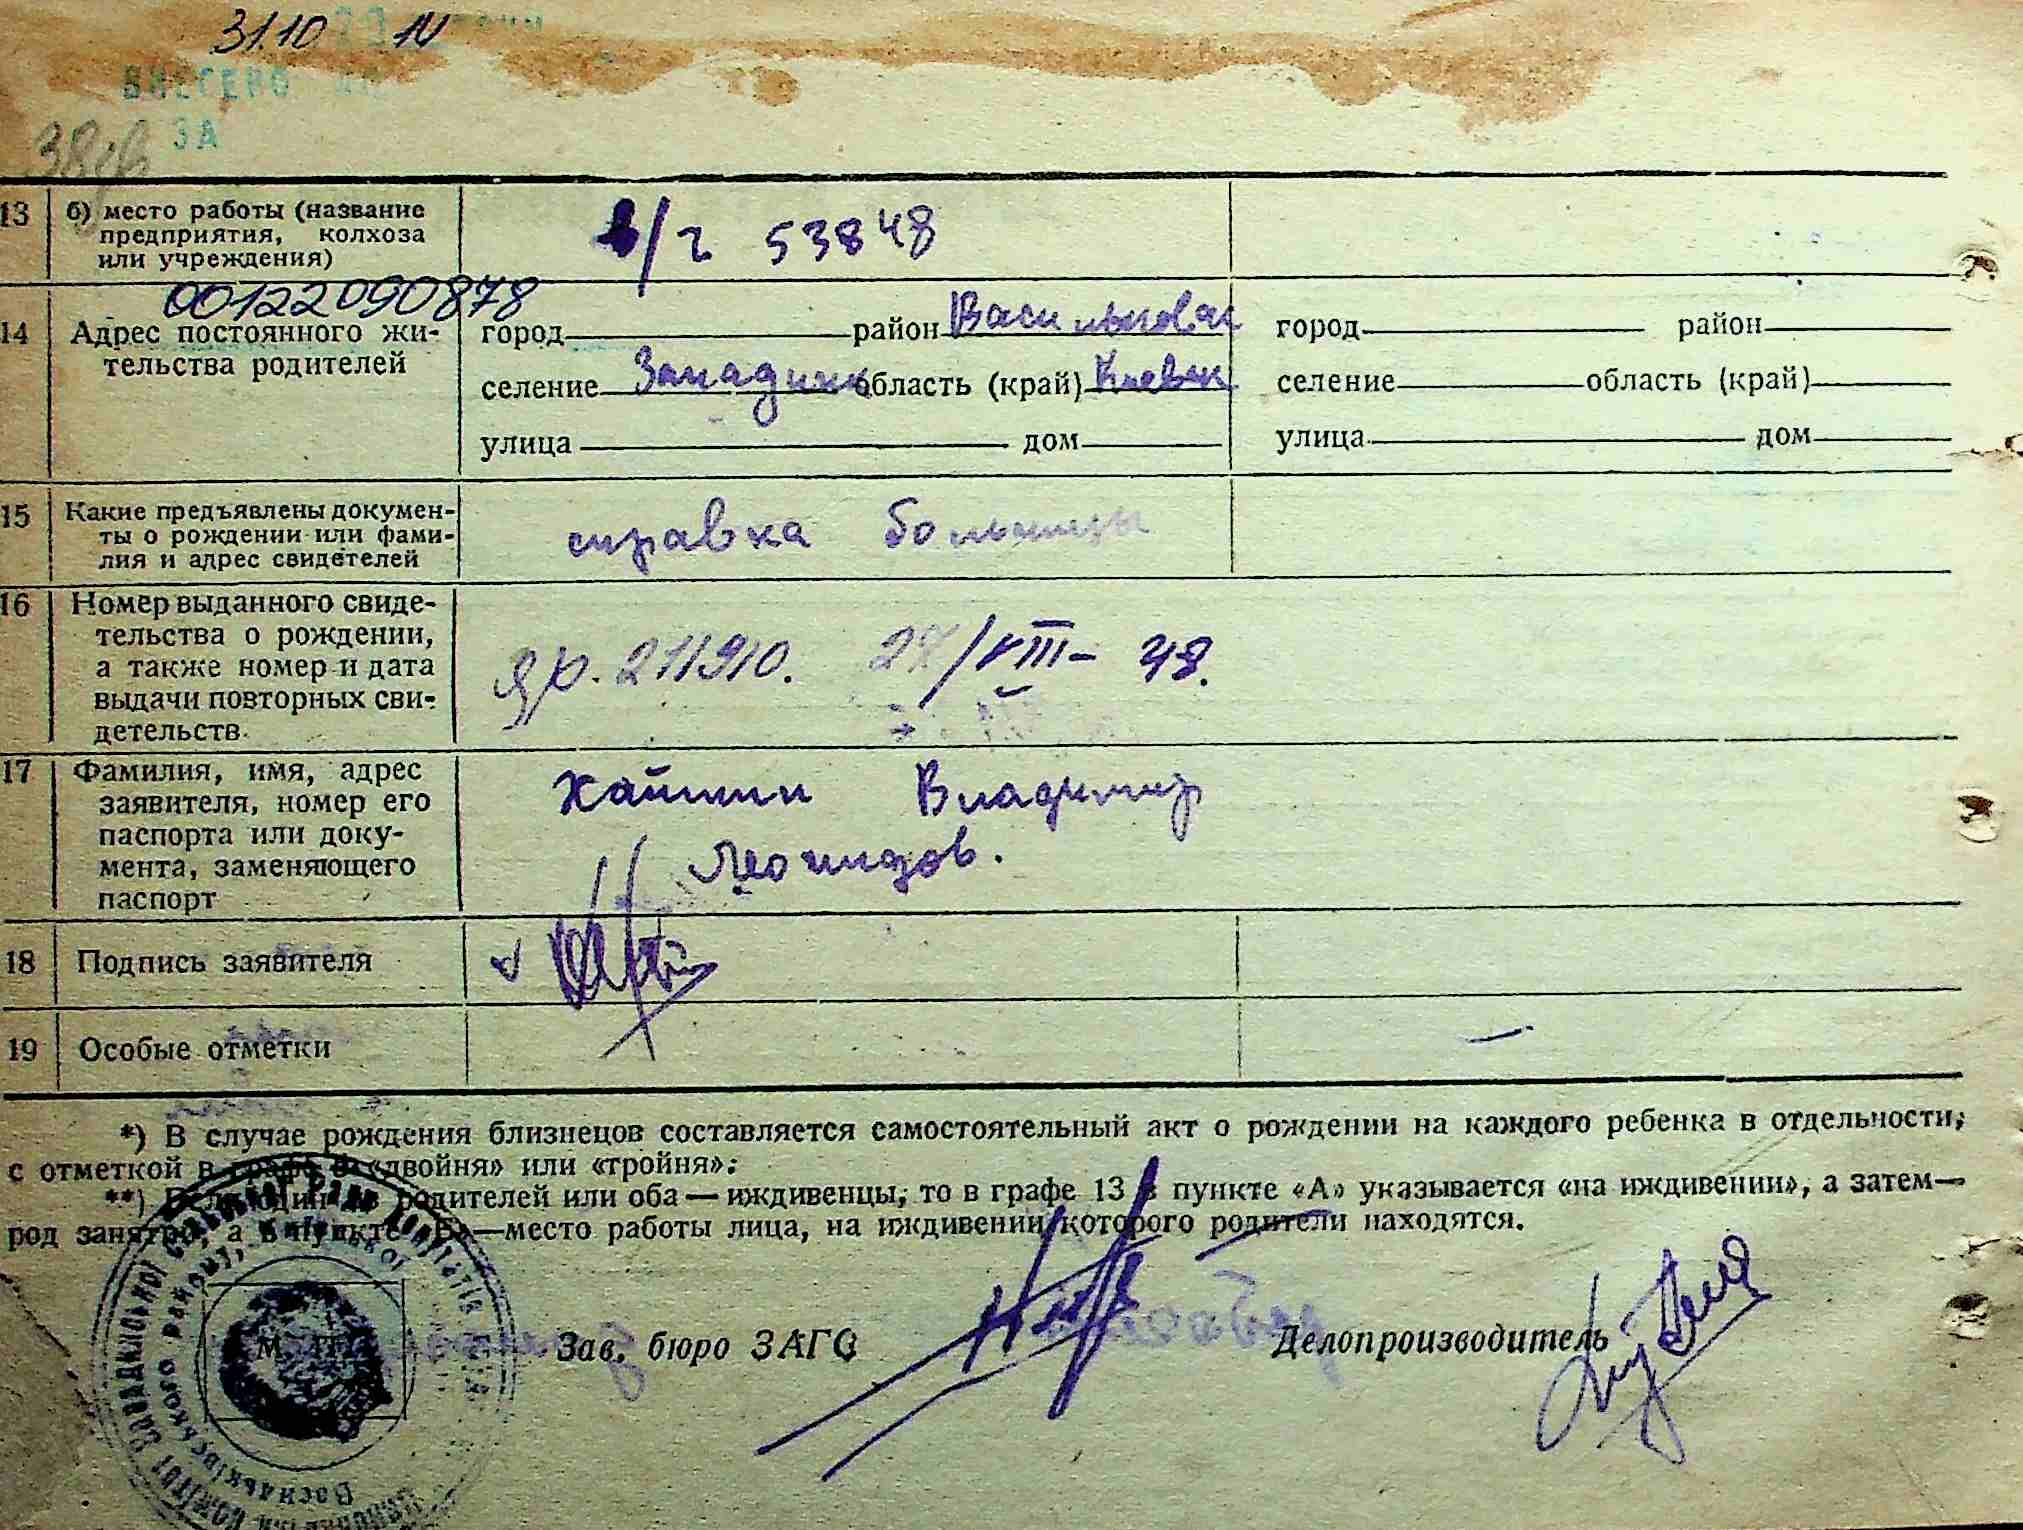 31.10
ВНЕСЕНО
ЗА
13 б) место работы (название
предприятия, колхоза
или учреждения)
в/ч 53848
00122090878
14 Адрес постоянного жи-
тельства родителей
город район Васильковск
селение Западинк область (край) Киевск
улица дом
город район
селение область (край)
улица дом
15 Какие предъявлены докумен-
ты о рождении или фами-
лия и адрес свидетелей
справка больницы
16 Номер выданного свиде-
тельства о рождении,
а также номер и дата
выдачи повторных сви-
детельств
211910. /VIII- 48.
17 Фамилия, имя, адрес
заявителя, номер его
паспорта или доку-
мента, заменяющего
паспорт
Владимир
Леонидов.
18 Подпись заявителя
19 Особые отметки —
*) В случае рождения близнецов составляется самостоятельный акт о рождении на каждого ребенка в отдельности,
с отметкой в графе «двойня» или «тройня»;
**) родителей или оба — иждивенцы, то в графе 13 в пункте «А» указывается «на иждивении», а затем—
род занятий, а в пункте —место работы лица, на иждивении которого родители находятся.
М. П.
Зав. бюро ЗАГС
Делопроизводитель